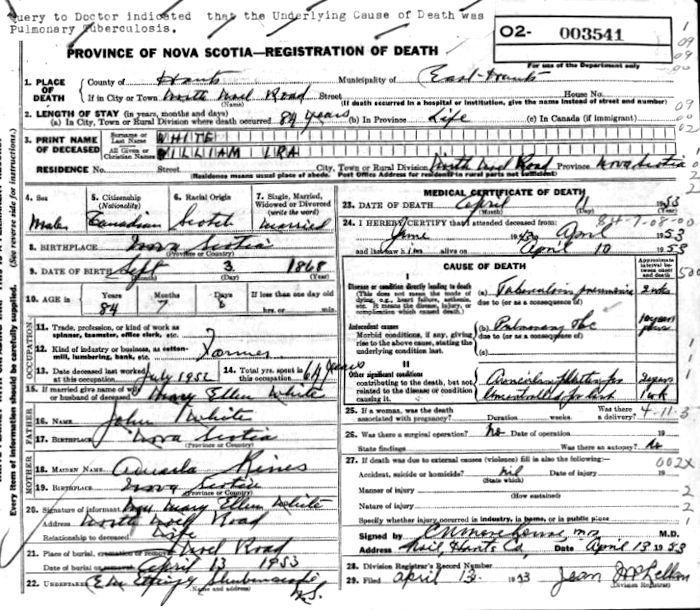 Query to Doctor indicated that the Underlying Cause of Death was
Pulmonary Tuberculosis.
O2- 003541
For use of the Department only
PROVINCE OF NOVA SCOTIA—REGISTRATION OF DEATH
1. PLACE OF DEATH County of Hants Municipality of East Hants
If in City or Town North Noel Road Street House No.
(Name) (If death occurred in a hospital or institution, give the name instead of street and number)
2. LENGTH OF STAY (in years, months and days)
(a) In City, Town or Rural Division where death occurred 84 years (b) In Province Life (c) In Canada (if immigrant)
3. PRINT NAME OF DECEASED Surname or Last Name WHITE
All Given or Christian Names WILLIAM IRA
RESIDENCE No. Street City, Town or Rural Division North Noel Road Province Nova Scotia
(Residence means usual place of abode. Post Office Address for residents in rural parts not sufficient)
4. Sex Male
5. Citizenship (Nationality) Canadian
6. Racial Origin Scotch
7. Single, Married, Widowed or Divorced (write the word) Married
8. BIRTHPLACE Nova Scotia
(Province or Country)
9. DATE OF BIRTH Sept 3 1868
(Month) (Day) (Year)
10. AGE in Years 84 Months 7 Days 8 If less than one day old hrs. or min.
OCCUPATION
11. Trade, profession, or kind of work as spinner, teamster, office clerk, etc.
12. Kind of industry or business, as cotton-mill, lumbering, bank, etc. Farmer
13. Date deceased last worked at this occupation July 1952 14. Total yrs. spent in this occupation 64 years
15. If married give name of wife or husband of deceased Mary Ellen White
FATHER
16. NAME John White
17. BIRTHPLACE Nova Scotia
(Province or Country)
MOTHER
18. MAIDEN NAME Hines
19. BIRTHPLACE Nova Scotia
(Province or Country)
20. Signature of informant Mrs Mary Ellen White
Address North Noel Road
Relationship to deceased Wife
21. Place of burial, cremation or removal Noel Road
Date of burial April 13 1953
22. UNDERTAKER Shubenacadie N.S.
(Name and address)
MEDICAL CERTIFICATE OF DEATH
23. DATE OF DEATH April 11 1953
(Month) (Day) (Year)
84-7-08-00
24. I HEREBY CERTIFY that I attended deceased from:
June to April 1953
and last saw him alive on April 10 1953
CAUSE OF DEATH
Approximate interval between onset and death
I
Disease or condition directly leading to death (a) Tuberculous pneumonia 2 wks
(This does not mean the mode of dying, e.g., heart failure, asthenia, etc. It means the disease, injury, or complication which caused death.)
due to (or as a consequence of)
Antecedent causes (b) Pulmonary Tbc 10 years plus
Morbid conditions, if any, giving rise to the above cause, stating the underlying condition last.
due to (or as a consequence of)
(c)
II
Other significant conditions contributing to the death, but not related to the disease or condition causing it. 2 years
1 wk
25. If a woman, was the death associated with pregnancy? Duration weeks. Was there a delivery? 4-11-3
26. Was there a surgical operation? No Date of operation 19
State findings Was there an autopsy? No
27. If death was due to external causes (violence) fill in also the following:—
002X
Accident, suicide or homicide? Nil Date of injury 19
(State which)
Manner of injury
(How sustained)
Nature of injury
Specify whether injury occurred in industry, in home, or in public place
Signed by M.D.
Address Noel Hants Co Date April 13 1953
28. Division Registrar's Record Number
29. Filed April 13 1953 Jean
(Division Registrar)